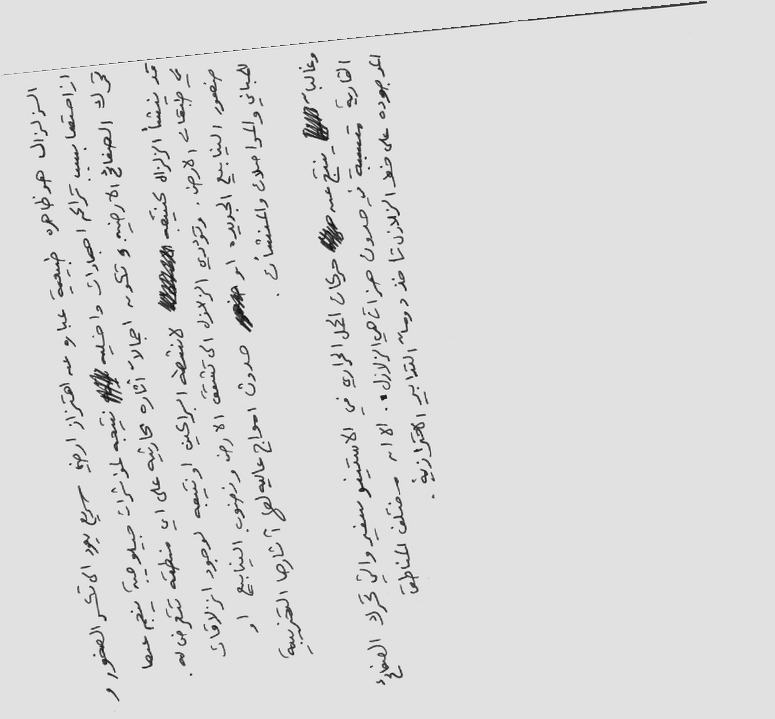 الزلزال هو ظاهره طبيعية عباره عن اهتزاز ارضي سريع يعود الى تكسر الصخور و
ازاحتها بسبب تراكم اجهادات داخليه نتيجه لمؤثرات جيلوجية ينجم عنها
تحرك الصفائح الارضيه و تكون اجمالا آثاره كارثيه على اي منطقه تتعرض له.
قد ينشأ الزلزال كنتيجه لانشطه البراكين او نتيجه لوجود انزلاقات
في طبقات الارض. وتؤدي الزلازل الى تشقق الارض ونضوب الينابيع او
ظهور الينابيع الجديده او حدوث امواج عاليه لها آثارها التخريبية
للمباني والمواصلات والمنشأت.
وغالبا ينتج عن حركات الحمل الحراري في الاستينوسفير والتي تحرك الصفائح
القارية متسببة في حدوث هزات هي الزلازل. الا ان مختلف المناطق
الموجوده على خط الزلازل تأخذ دوما التدابير الاحترازية.